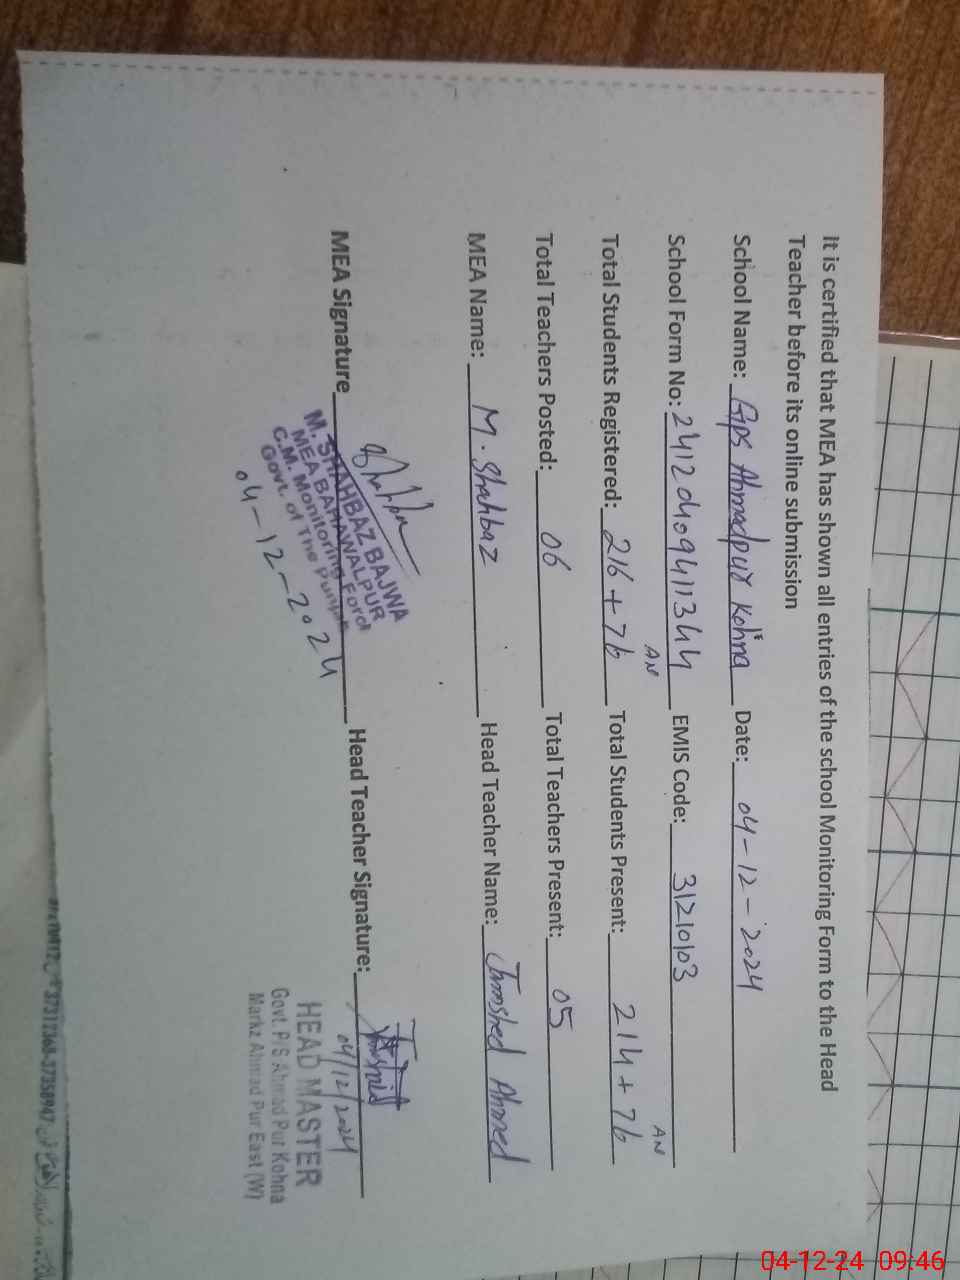 It is certified that MEA has shown all entries of the school Monitoring Form to the Head
Teacher before its online submission
School Name: Gps Ahmedpur Kohna Date: 04-12-2024
School Form No: 24120409411344 EMIS Code: 31210103
AN AN
Total Students Registered: 216+76 Total Students Present: 214+76
Total Teachers Posted: 06 Total Teachers Present: 05
MEA Name: M. Shahbaz Head Teacher Name: Jamshed Ahmed
MEA Signature Head Teacher Signature:
04/12/2024
M. SHAHBAZ BAJWA
MEA BAHAWALPUR
C.M. Monitoring Force
Govt. of The Punjab
04-12-2024
HEAD MASTER
Govt. P/S Ahmad Pur Kohna
Markz Ahmad Pur East (W)
37312368-37358947
04-12-24 09:46